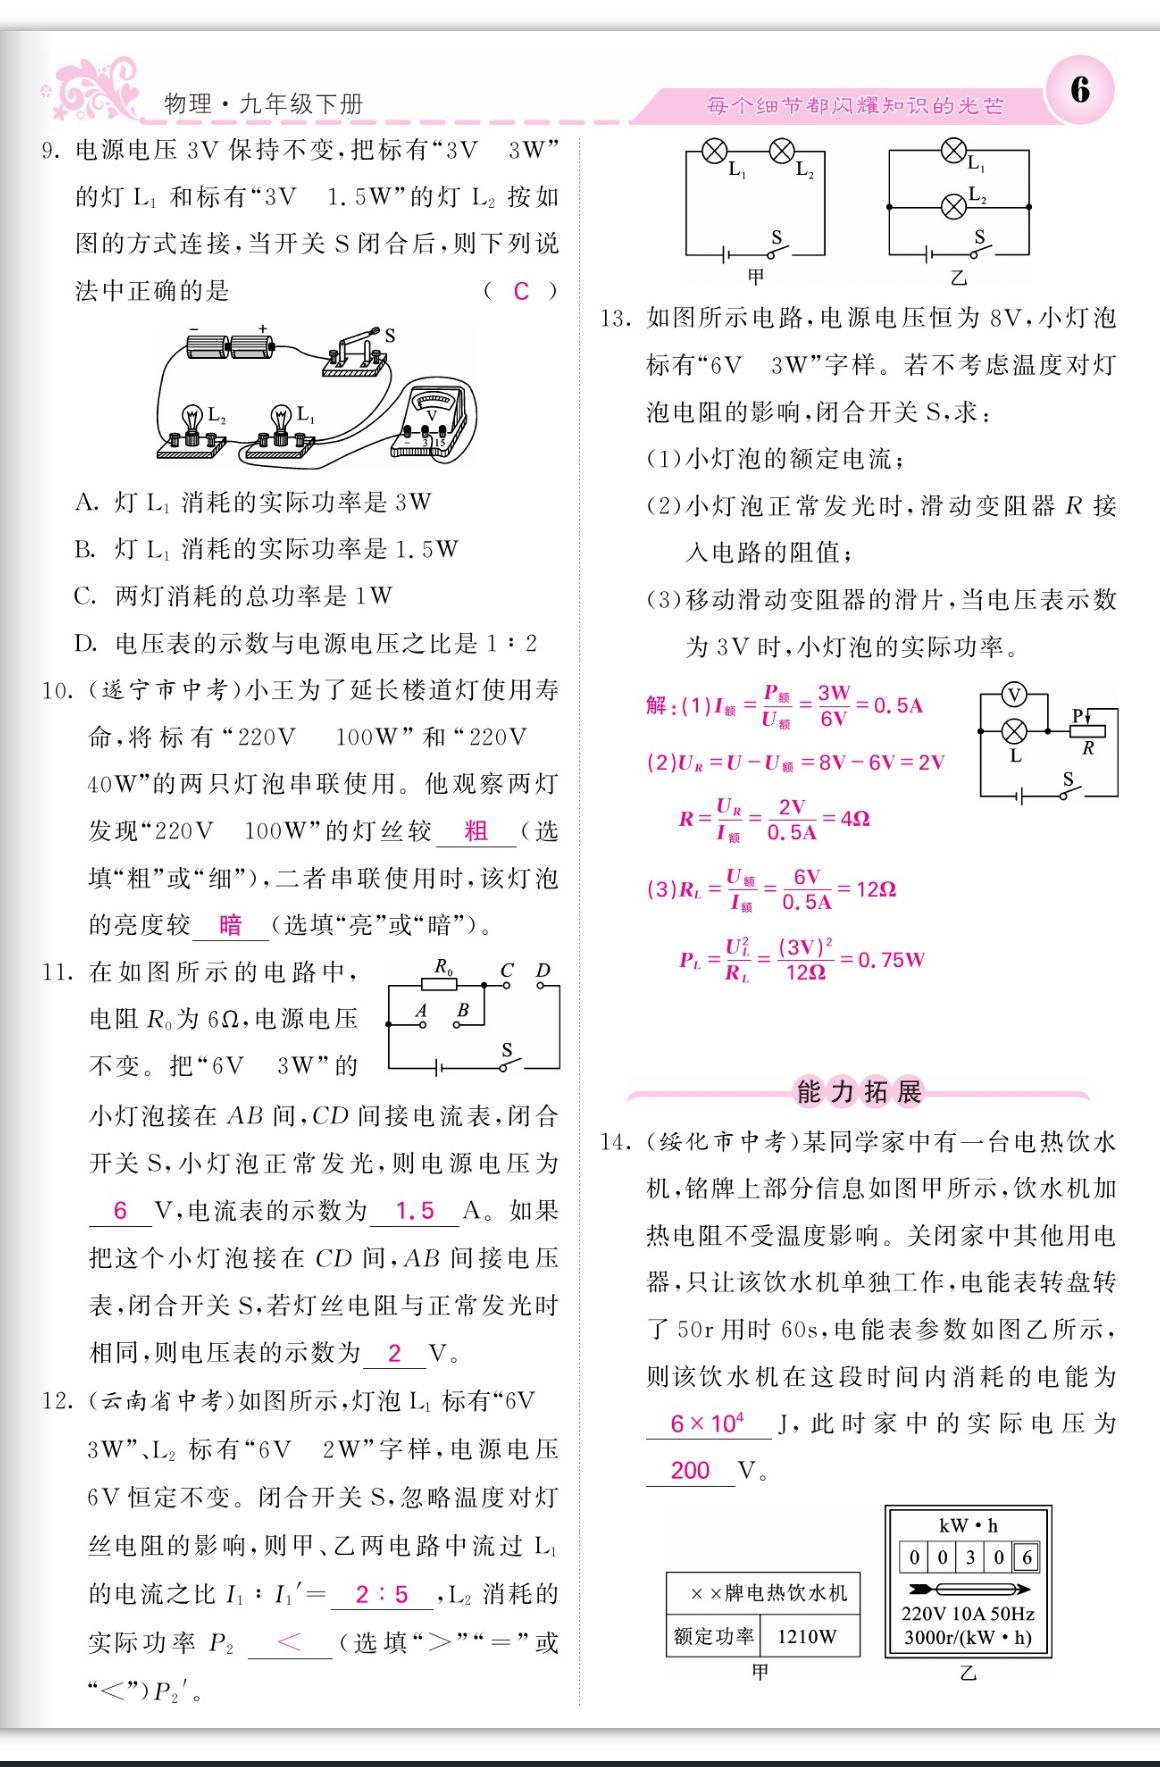 物理·九年级下册
每个细节都闪耀知识的光芒
6
9. 电源电压 3V 保持不变,把标有“3V 3W”
的灯 L₁ 和标有“3V 1.5W”的灯 L₂ 按如
图的方式连接,当开关 S 闭合后,则下列说
法中正确的是 ( C )
- + S
L₂ L₁ V
- 3 15
A. 灯 L₁ 消耗的实际功率是 3W
B. 灯 L₁ 消耗的实际功率是 1.5W
C. 两灯消耗的总功率是 1W
D. 电压表的示数与电源电压之比是 1∶2
10. (遂宁市中考)小王为了延长楼道灯使用寿
命,将标有“220V 100W”和“220V
40W”的两只灯泡串联使用。他观察两灯
发现“220V 100W”的灯丝较 粗 (选
填“粗”或“细”),二者串联使用时,该灯泡
的亮度较 暗 (选填“亮”或“暗”)。
11. 在如图所示的电路中,
电阻 R₀为 6Ω,电源电压
不变。把“6V 3W”的
R₀ C D
A B
S
小灯泡接在 AB 间,CD 间接电流表,闭合
开关 S,小灯泡正常发光,则电源电压为
6 V,电流表的示数为 1.5 A。如果
把这个小灯泡接在 CD 间,AB 间接电压
表,闭合开关 S,若灯丝电阻与正常发光时
相同,则电压表的示数为 2 V。
12. (云南省中考)如图所示,灯泡 L₁ 标有“6V
3W”、L₂ 标有“6V 2W”字样,电源电压
6V 恒定不变。闭合开关 S,忽略温度对灯
丝电阻的影响,则甲、乙两电路中流过 L₁
的电流之比 I₁∶I₁′= 2∶5 ,L₂ 消耗的
实际功率 P₂ < (选填“>”“=”或
“<”)P₂′。
L₁ L₂ S
甲
L₁ L₂ S
乙
13. 如图所示电路,电源电压恒为 8V,小灯泡
标有“6V 3W”字样。若不考虑温度对灯
泡电阻的影响,闭合开关 S,求:
(1)小灯泡的额定电流;
(2)小灯泡正常发光时,滑动变阻器 R 接
入电路的阻值;
(3)移动滑动变阻器的滑片,当电压表示数
为 3V 时,小灯泡的实际功率。
解:(1)I额=P额/U额=3W/6V=0.5A
(2)U_R=U-U额=8V-6V=2V
R=U_R/I额=2V/0.5A=4Ω
(3)R_L=U额/I额=6V/0.5A=12Ω
P_L=U_L²/R_L=(3V)²/12Ω=0.75W
V
P
L R
S
能力拓展
14. (绥化市中考)某同学家中有一台电热饮水
机,铭牌上部分信息如图甲所示,饮水机加
热电阻不受温度影响。关闭家中其他用电
器,只让该饮水机单独工作,电能表转盘转
了 50r 用时 60s,电能表参数如图乙所示,
则该饮水机在这段时间内消耗的电能为
6×10⁴ J,此时家中的实际电压为
200 V。
××牌电热饮水机
额定功率 1210W
甲
kW·h
0 0 3 0 6
220V 10A 50Hz
3000r/(kW·h)
乙